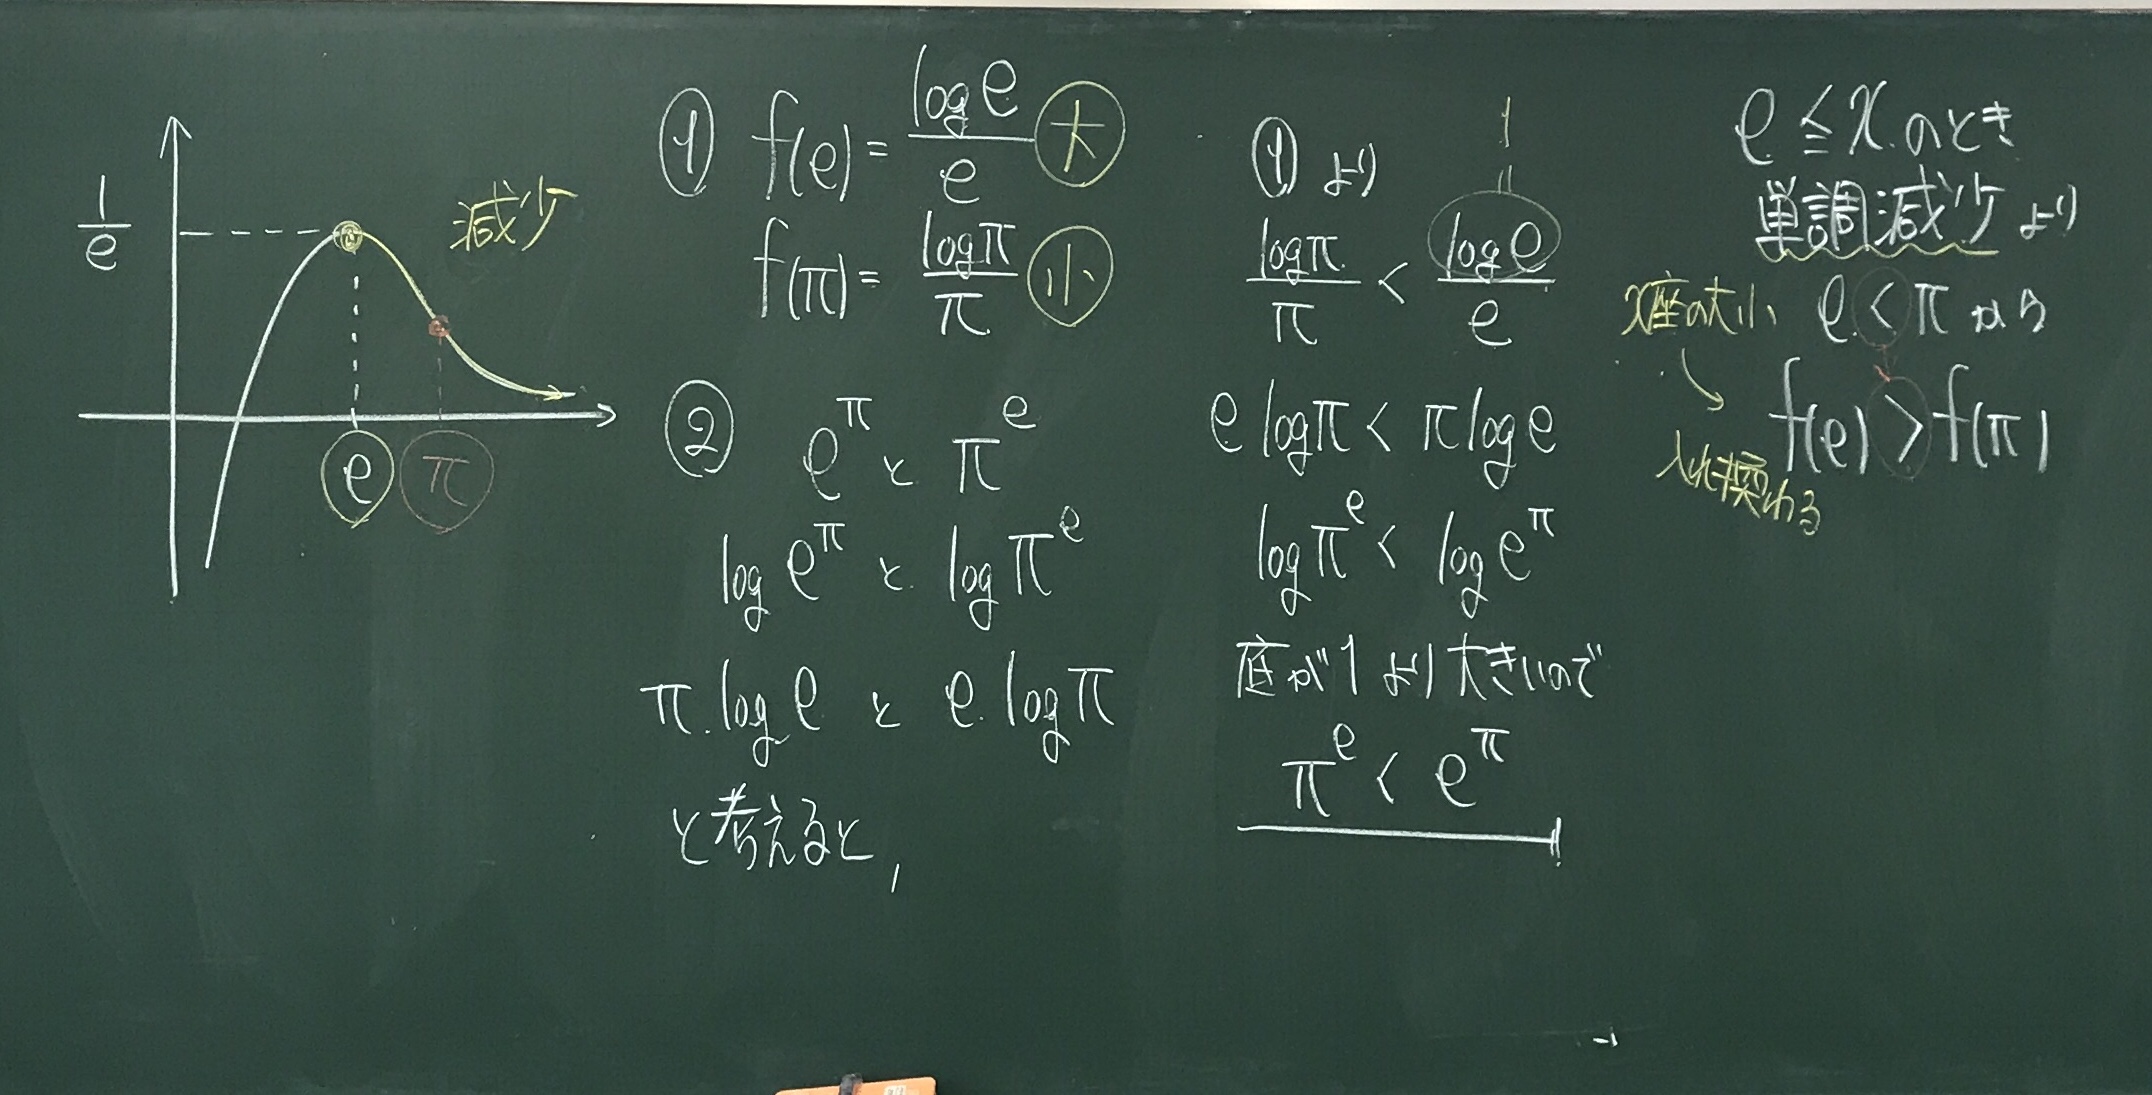 1/e
減少
e π
① f(e) = log e / e 大
f(π) = log π / π 小
② e^π と π^e
log e^π と log π^e
π・log e と e・log π
と考えると,
①より
1
||
log π / π < log e / e
e log π < π log e
log π^e < log e^π
底が1より大きいので
π^e < e^π
e ≦ x のとき
単調減少より
x座の大小 e < π から
f(e) > f(π)
入れ換わる